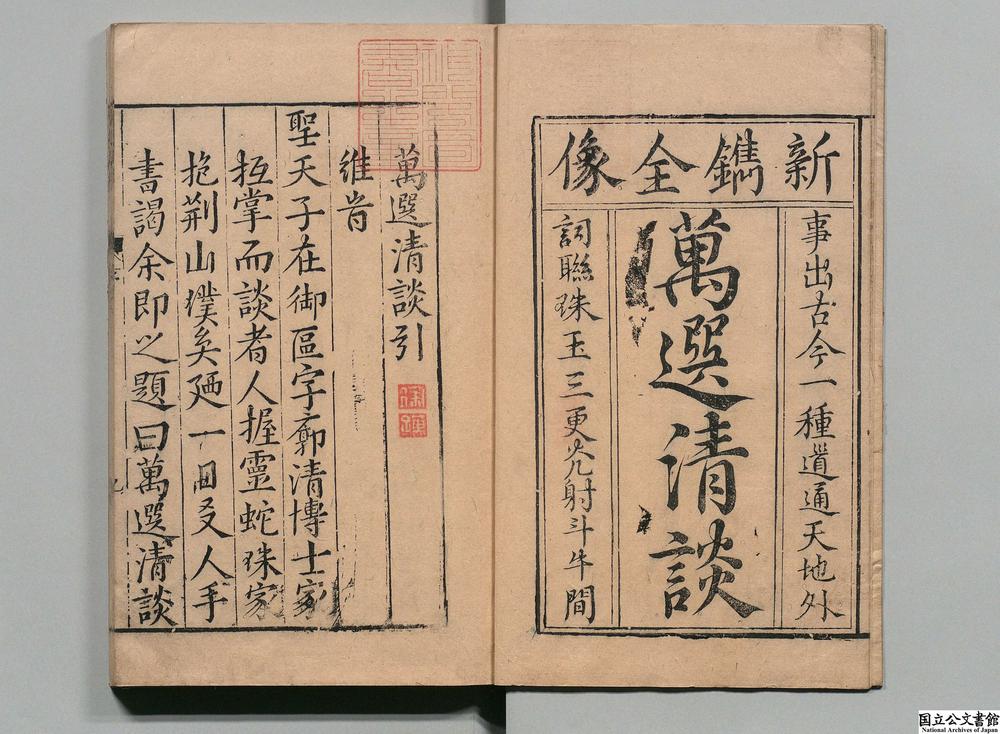 新鐫全像
事出古今一種道通天地外
萬選清談
詞聯珠玉三更光射斗牛間
萬選清談引
維旹
聖天子在御區宇廓清博士家
抵掌而談者人握靈蛇珠家
抱荆山璞矣廼一日叏人手
書謁余即之題曰萬選清談
国立公文書館
National Archives of Japan